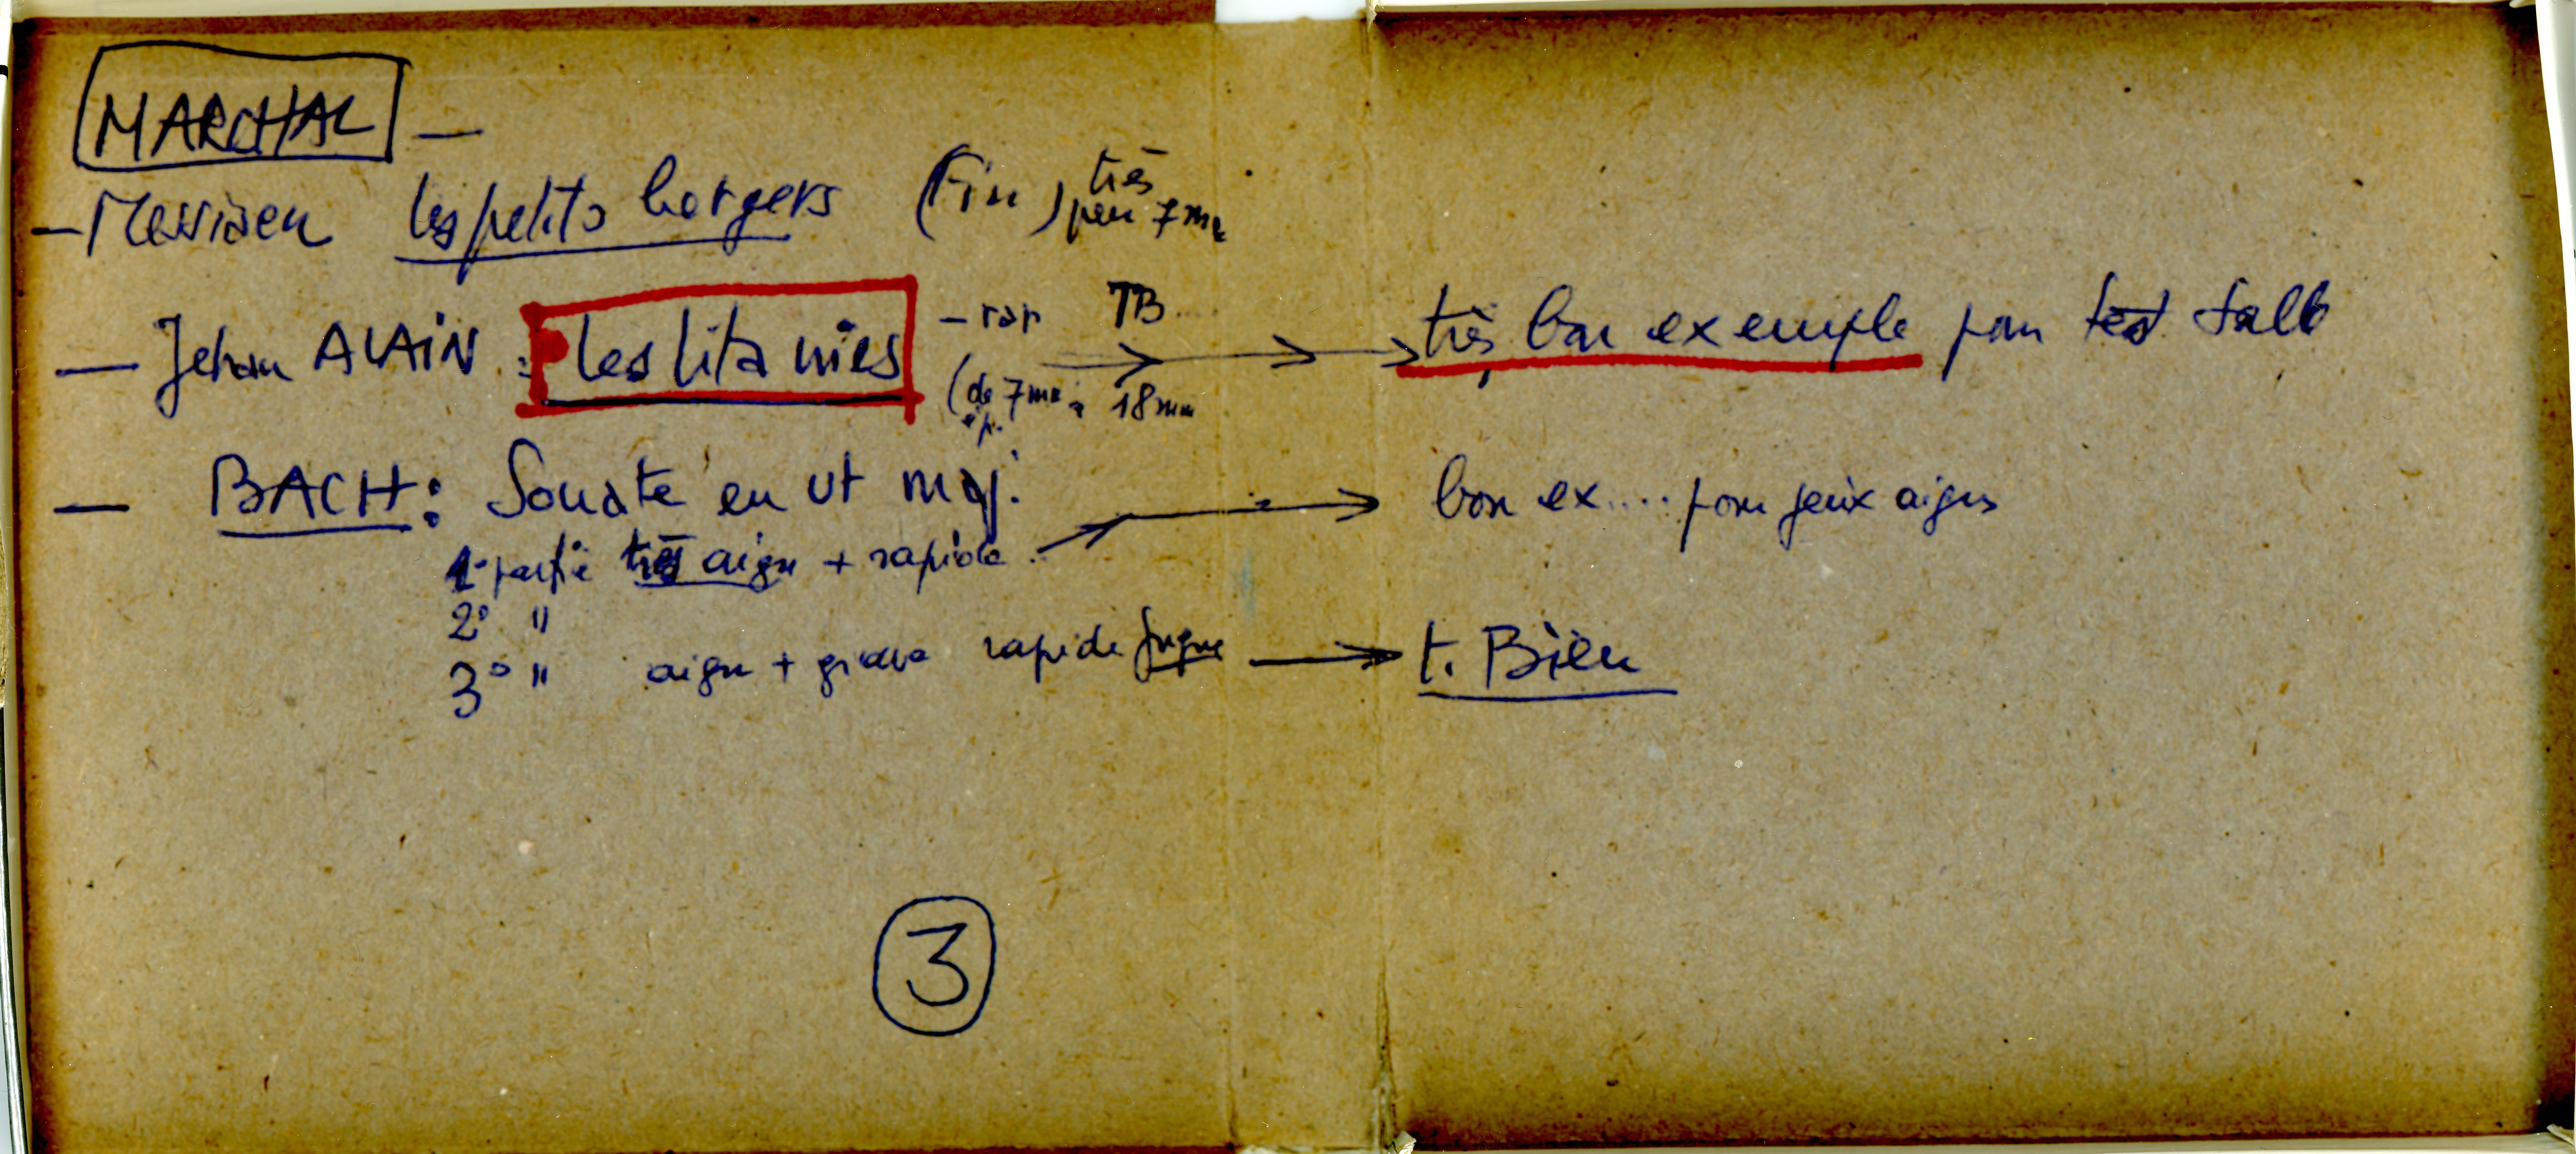 MARCHAL —
— Messiaen les petits bergers (Fin) très peu 7mm
— Jehan ALAIN : Les litanies — rap TB très bon exemple pour test salle
(de 7mm à 18mm
— BACH : Sonate en ut maj.
1° partie très aigu + rapide bon ex.... pour jeux aigus
2° "
3° " aigu + grave rapide fugue t. Bien
3